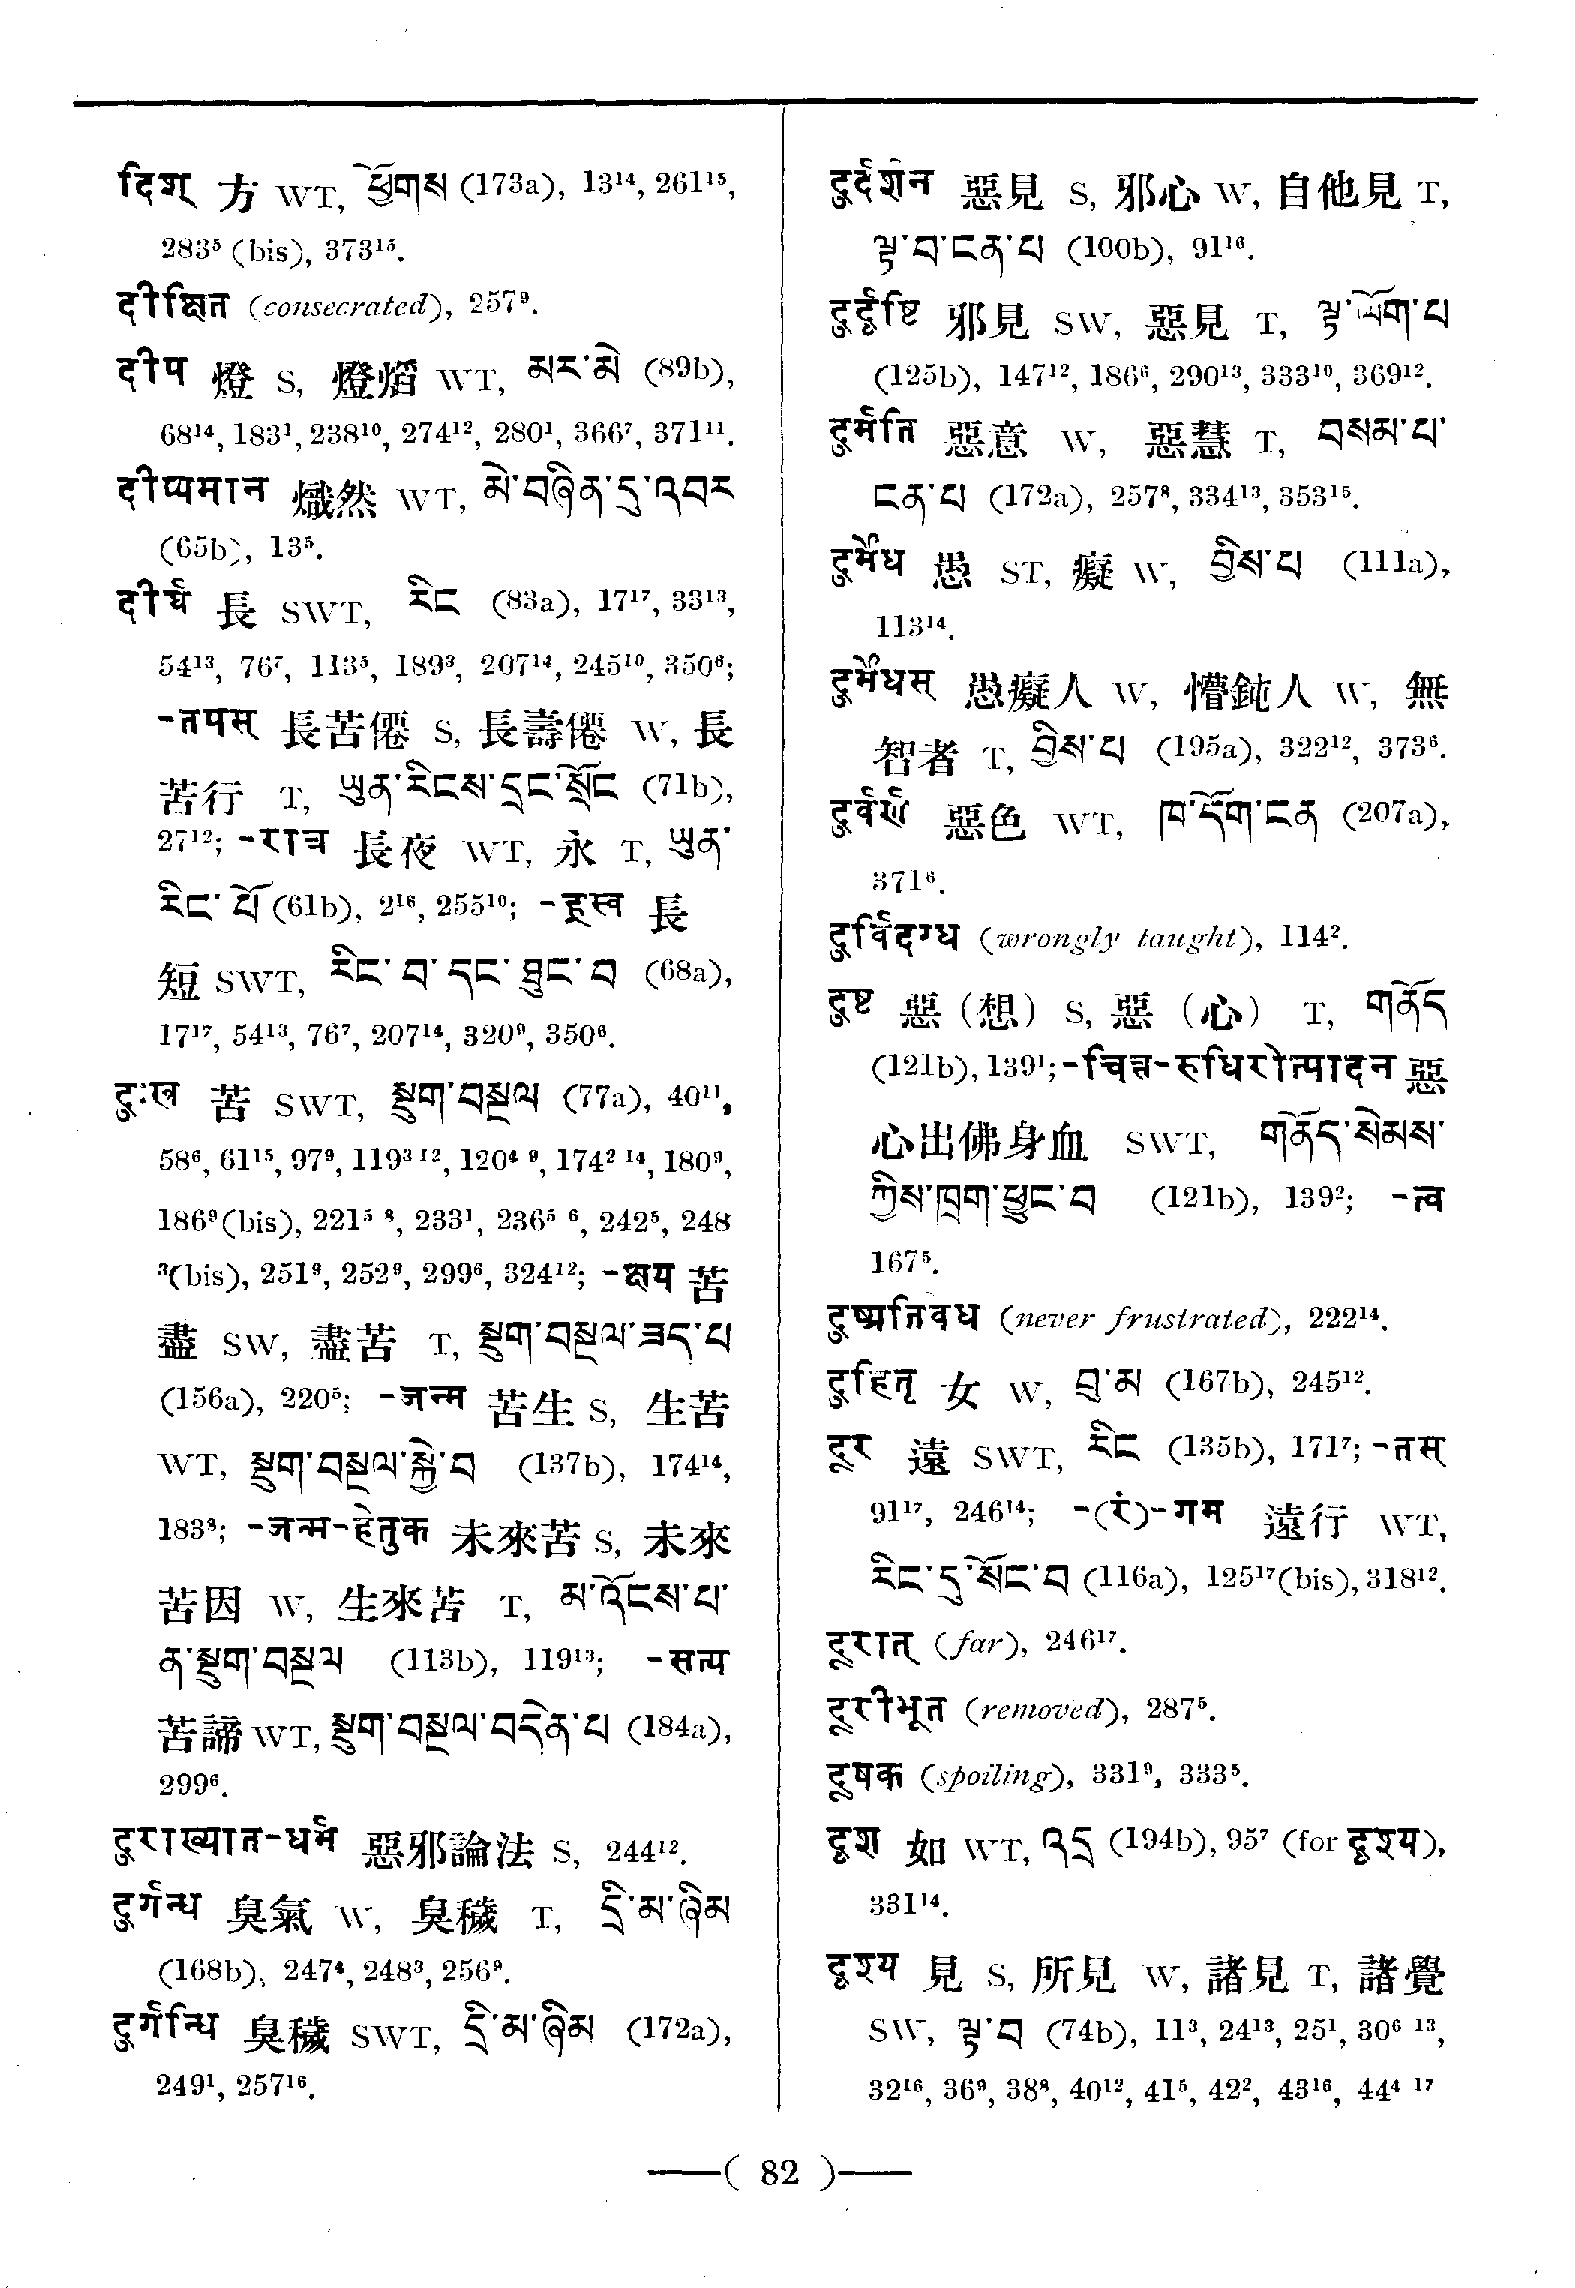 दिश् 方 WT, ཕྱོགས (173a), 13¹⁴, 261¹⁵,
283⁵ (bis), 373¹⁵.
दीक्षित (consecrated), 257⁹.
दीप 燈 S, 燈熖 WT, མར་མེ (89b),
68¹⁴, 183¹, 238¹⁰, 274¹², 280¹, 366⁷, 371¹¹.
दीप्यमान 熾然 WT, མེ་བཞིན་དུ་འབར
(65b), 13⁵.
दीर्घ 長 SWT, རིང (83a), 17¹⁷, 33¹³,
54¹³, 76⁷, 113⁵, 189³, 207¹⁴, 245¹⁰, 350⁶;
-तपस् 長苦僊 S, 長壽僊 W, 長
苦行 T, ཡུན་རིངས་དྲང་སྲོང (71b),
27¹²; -रात्र 長夜 WT, 永 T, ཡུན་
རིང་པོ (61b), 2¹⁶, 255¹⁰; -ह्रस्व 長
短 SWT, རིང་བ་དང་ཐུང་བ (68a),
17¹⁷, 54¹³, 76⁷, 207¹⁴, 320⁹, 350⁶.
दुःख 苦 SWT, སྡུག་བསྔལ (77a), 40¹¹,
58⁶, 61¹⁵, 97⁹, 119³ ¹², 120⁴ ⁹, 174² ¹⁴, 180⁹,
186⁹(bis), 221⁵ ⁸, 233¹, 236⁵ ⁶, 242⁵, 248
³(bis), 251⁹, 252⁹, 299⁶, 324¹²; -क्षय 苦
盡 SW, 盡苦 T, སྡུག་བསྔལ་ཟད་པ
(156a), 220⁵; -जन्म 苦生 S, 生苦
WT, སྡུག་བསྔལ་སྐྱེ་བ (137b), 174¹⁴,
183⁸; -जन्म-हेतुक 未來苦 S, 未來
苦因 W, 生來苦 T, མ་འོངས་པ་
ན་སྡུག་བསྔལ (113b), 119¹³; -सत्य
苦諦 WT, སྡུག་བསྔལ་བདེན་པ (184a),
299⁶.
दुराख्यात-धर्म 惡邪論法 S, 244¹².
दुर्गन्ध 臭氣 W, 臭穢 T, དྲི་མ་ཞིམ
(168b), 247⁴, 248³, 256⁹.
दुर्गन्धि 臭穢 SWT, དྲི་མ་ཞིམ (172a),
249¹, 257¹⁶.
दुर्दर्शन 惡見 S, 邪心 W, 自他見 T,
ལྟ་བ་ངན་པ (100b), 91¹⁶.
दुर्दृष्टि 邪見 SW, 惡見 T, ལྟ་ཡོག་པ
(125b), 147¹², 186⁶, 290¹³, 333¹⁰, 369¹².
दुर्मति 惡意 W, 惡慧 T, བསམ་པ་
ངན་པ (172a), 257⁸, 334¹³, 353¹⁵.
दुर्मेध 愚 ST, 癡 W, བྱིས་པ (111a),
113¹⁴.
दुर्मेधस् 愚癡人 W, 懵鈍人 W, 無
智者 T, བྱིས་པ (195a), 322¹², 373⁶.
दुर्वर्ण 惡色 WT, ཁ་དོག་ངན (207a),
371⁶.
दुर्विदग्ध (wrongly taught), 114².
दुष्ट 惡 (想) S, 惡 (心) T, གནོད
(121b), 139¹; -चित्त-रुधिरोत्पादन 惡
心出佛身血 SWT, གནོད་སེམས་
ཀྱིས་ཁྲག་ཕྱུང་བ (121b), 139²; -त्व
167⁵.
दुष्प्रतिवध (never frustrated), 222¹⁴.
दुहितृ 女 W, བུ་མ (167b), 245¹².
दूर 遠 SWT, རིང (135b), 171⁷; -तस्
91¹⁷, 246¹⁴; -(रं)-गम 遠行 WT,
རིང་དུ་སོང་བ (116a), 125¹⁷(bis), 318¹².
दूरात् (far), 246¹⁷.
दूरीभूत (removed), 287⁵.
दूषक (spoiling), 331⁹, 333⁵.
दृश 如 WT, འདྲ (194b), 95⁷ (for दृश्य),
331¹⁴.
दृश्य 見 S, 所見 W, 諸見 T, 諸覺
SW, ལྟ་བ (74b), 11³, 24¹³, 25¹, 30⁶ ¹³,
32¹⁶, 36⁹, 38⁸, 40¹², 41⁵, 42², 43¹⁶, 44⁴ ¹⁷
( 82 )